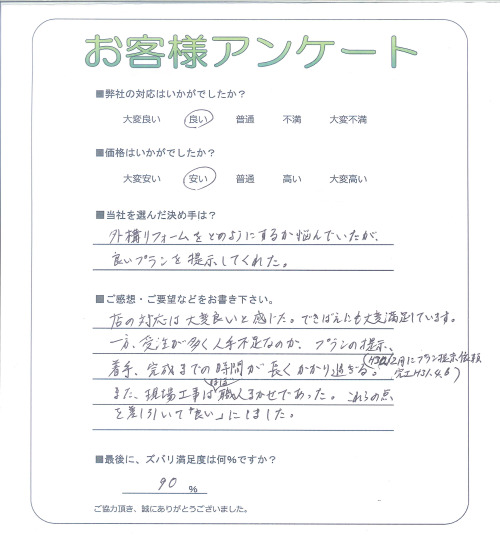 お客様アンケート
■弊社の対応はいかがでしたか？
大変良い 良い 普通 不満 大変不満
■価格はいかがでしたか？
大変安い 安い 普通 高い 大変高い
■当社を選んだ決め手は？
外構リフォームをどのようにするか悩んでいたが、
良いプランを提示してくれた。
■ご感想・ご要望などをお書き下さい。
店の対応は大変良いと感じた。できばえにも大変満足しています。
一方、受注が多く人手不足なのか、プランの提示、
着手、完成までの時間が長くかかり過ぎる。
にプラン提示依頼
完工H31.4.6)
また、現場工事はほぼ職人まかせであった。これらの点
を差し引いて「良い」にしました。
■最後に、ズバリ満足度は何％ですか？
90 %
ご協力頂き、誠にありがとうございました。